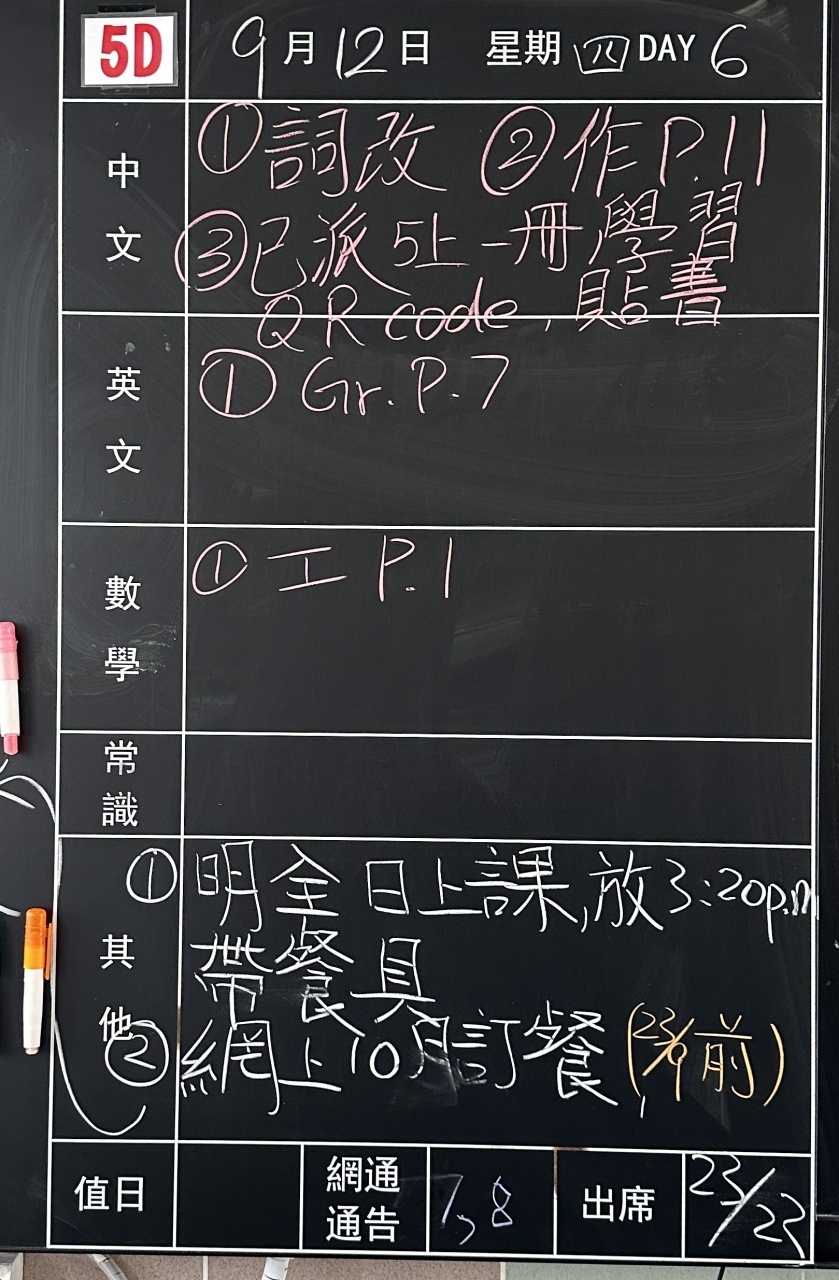 5D 9月12日 星期四 DAY 6
中文 ①詞改 ②作P.11
③已派5上一冊學習
QR code,貼書
英文 ①Gr.P.7
數學 ①工 P.1
常識
其他 ①明全日上課,放3:20p.m
帶餐具
②網上10月訂餐(23/9前)
值日 網通通告 7,8 出席 23/23